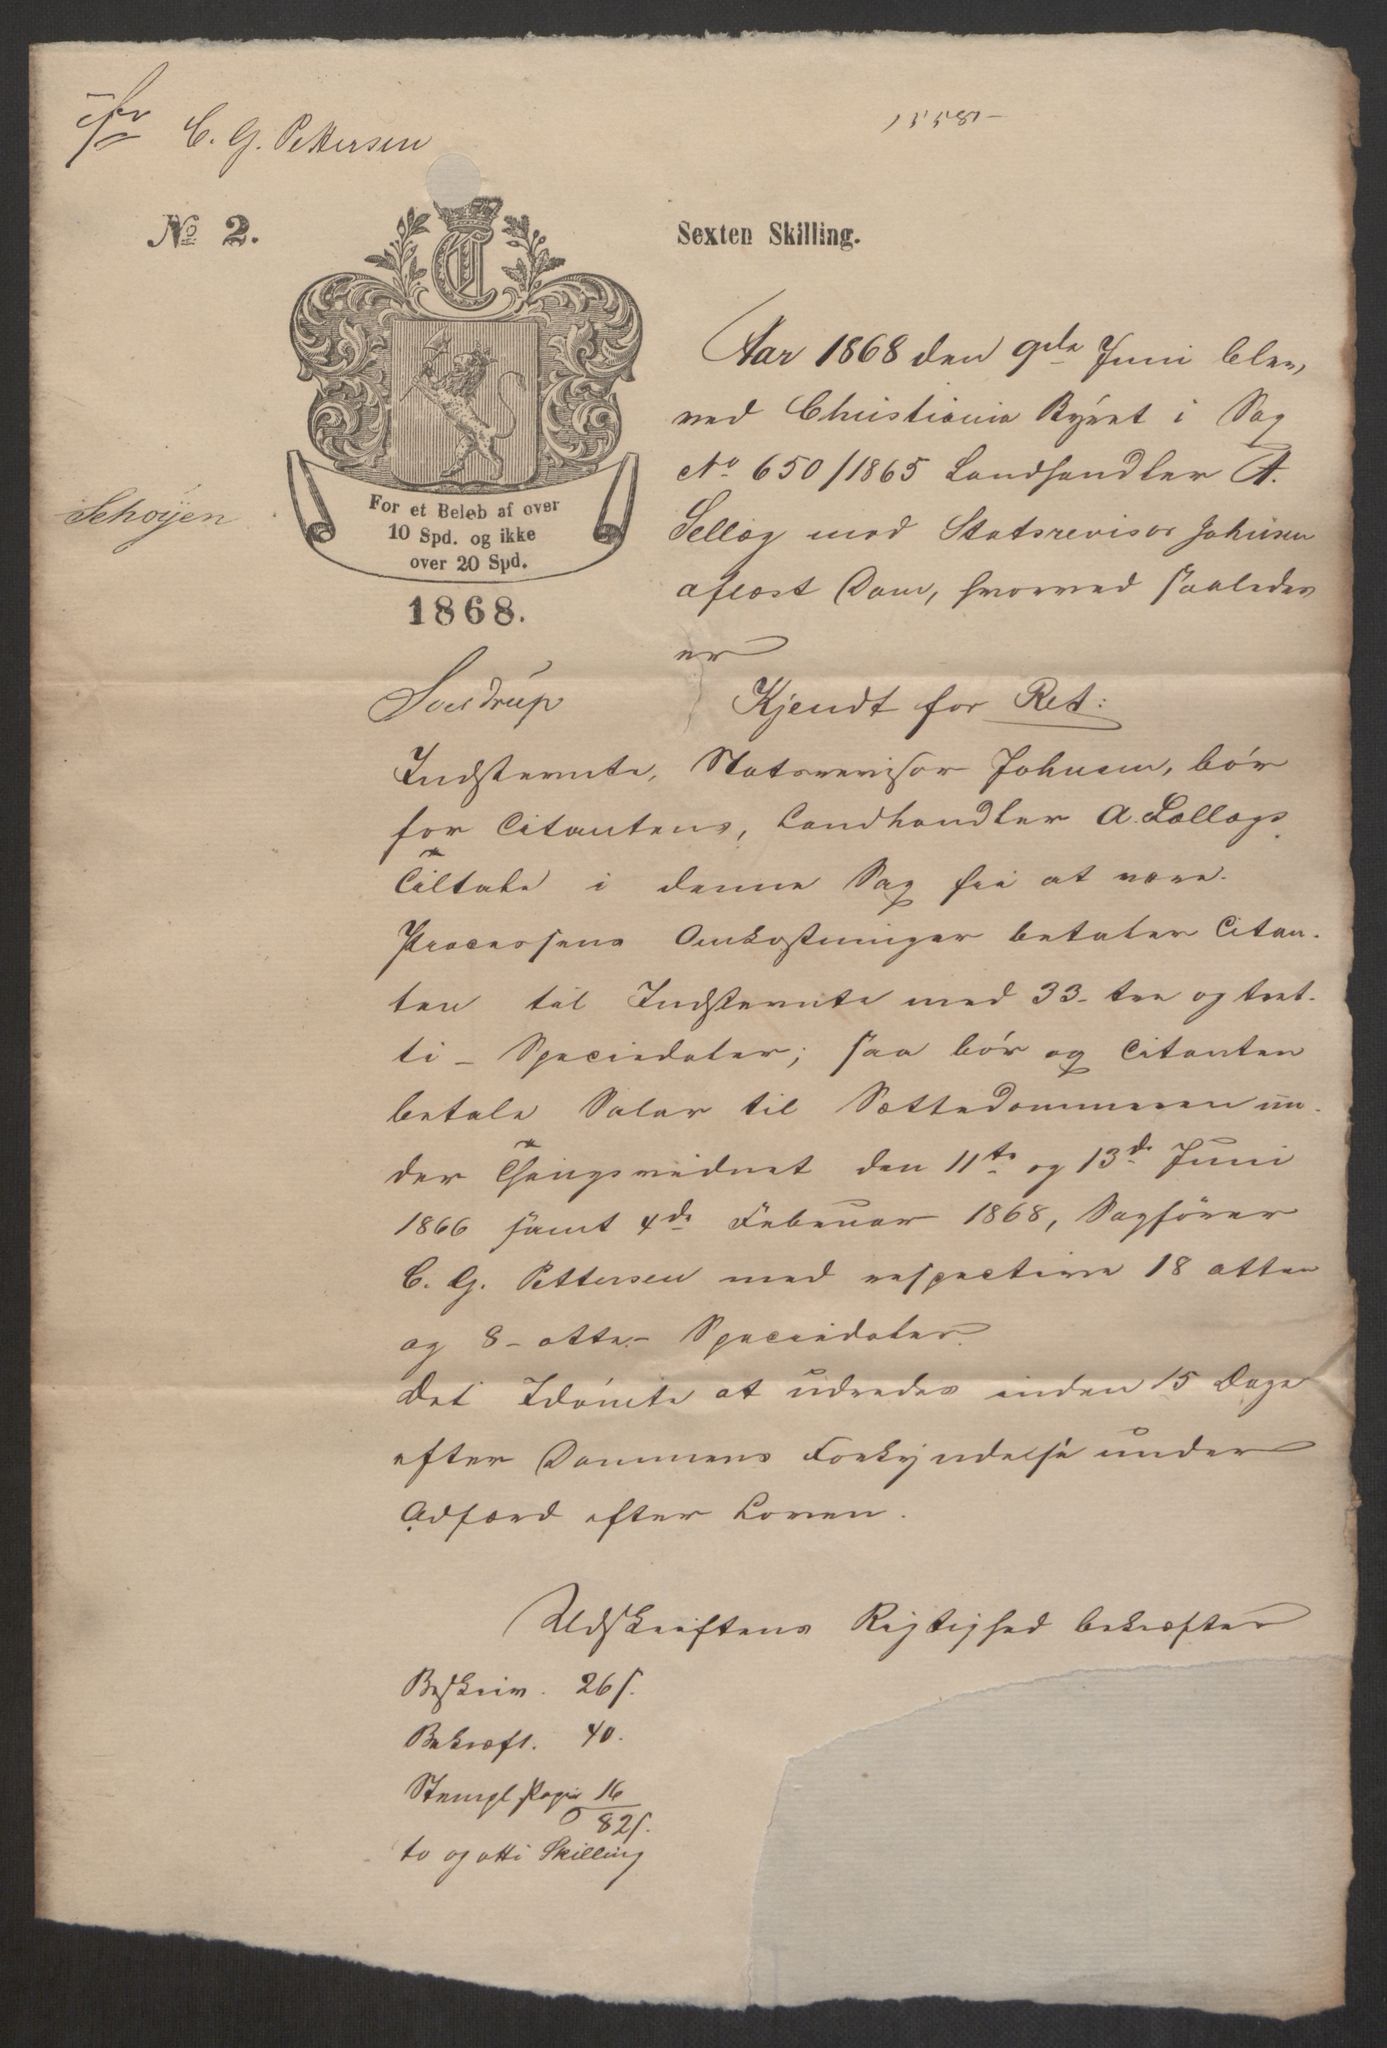 C. G. Pettersen
1558
No 2.
Sexten Skilling.
For et Beløb af over
10 Spd. og ikke
over 20 Spd.
1868.
Schøyen
Aar 1868 den 9de Juni blev,
ved Christiania Byret i Sag
No 650/1865 Landhandler A.
Sellæg mod Statsrevisor Johnsen
aflæst Dom, hvorved saaledes
er
Kjendt for Ret:
Indstevnte, Statsrevisor Johnsen, bør
for Citantens, Landhandler A. Sellægs
Tiltale i denne Sag fri at være.
Processens Omkostninger betaler Citan-
ten til Indstevnte med 33 - tre og tret-
ti - Speciedaler; saa bør og Citanten
betale Salær til Sættedommeren un-
der Thingsvidnet den 11te og 13de Juni
1866 samt 4de Februar 1868, Sagfører
C. G. Pettersen med respective 18 atten
og 8 - otte - Speciedaler.
Det Idømte at udredes inden 15 Dage
efter Dommens Forkyndelse under
Adfærd efter Loven.
Udskriftens Rigtighed bekræfter
Beskriv. 26 s.
Bekræft. 40.
Stempl. Papir 16
82 s.
to og otti Skilling